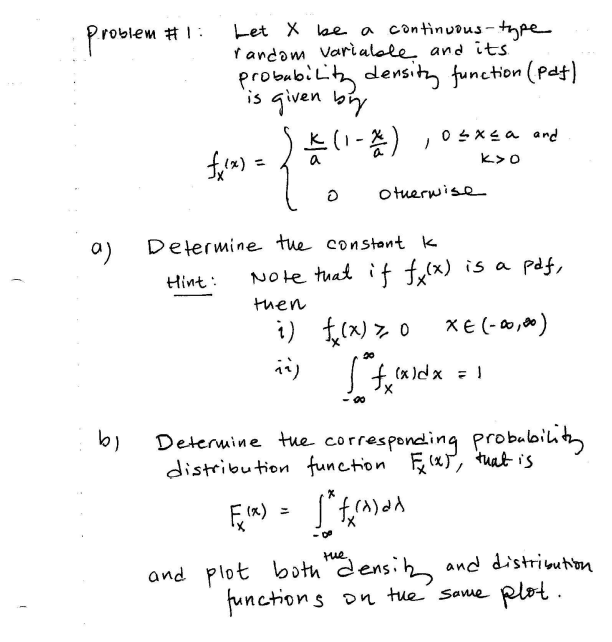 Problem # 1: Let X be a continuous-type
random variable and its
probability density function (pdf)
is given by
f_X(x) = { k/a (1 - x/a) , 0 ≤ x ≤ a and k > 0
0 otherwise
a) Determine the constant k
Hint: Note that if f_X(x) is a pdf,
then
i) f_X(x) ≥ 0 x ∈ (-∞, ∞)
ii) ∫_{-∞}^{∞} f_X(x) dx = 1
b) Determine the corresponding probability
distribution function F_X(x), that is
F_X(x) = ∫_{-∞}^{x} f_X(λ) dλ
and plot both the density and distribution
functions on the same plot.